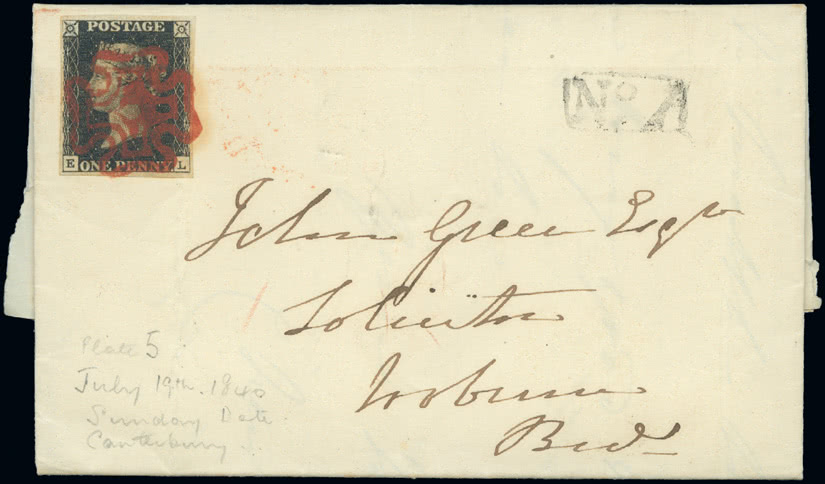 POSTAGE
E ONE PENNY L
No. 1
John Green Esqre
Solicitor
Woburn
Beds
Plate 5
July 19th. 1840
Sunday Date
Canterbury